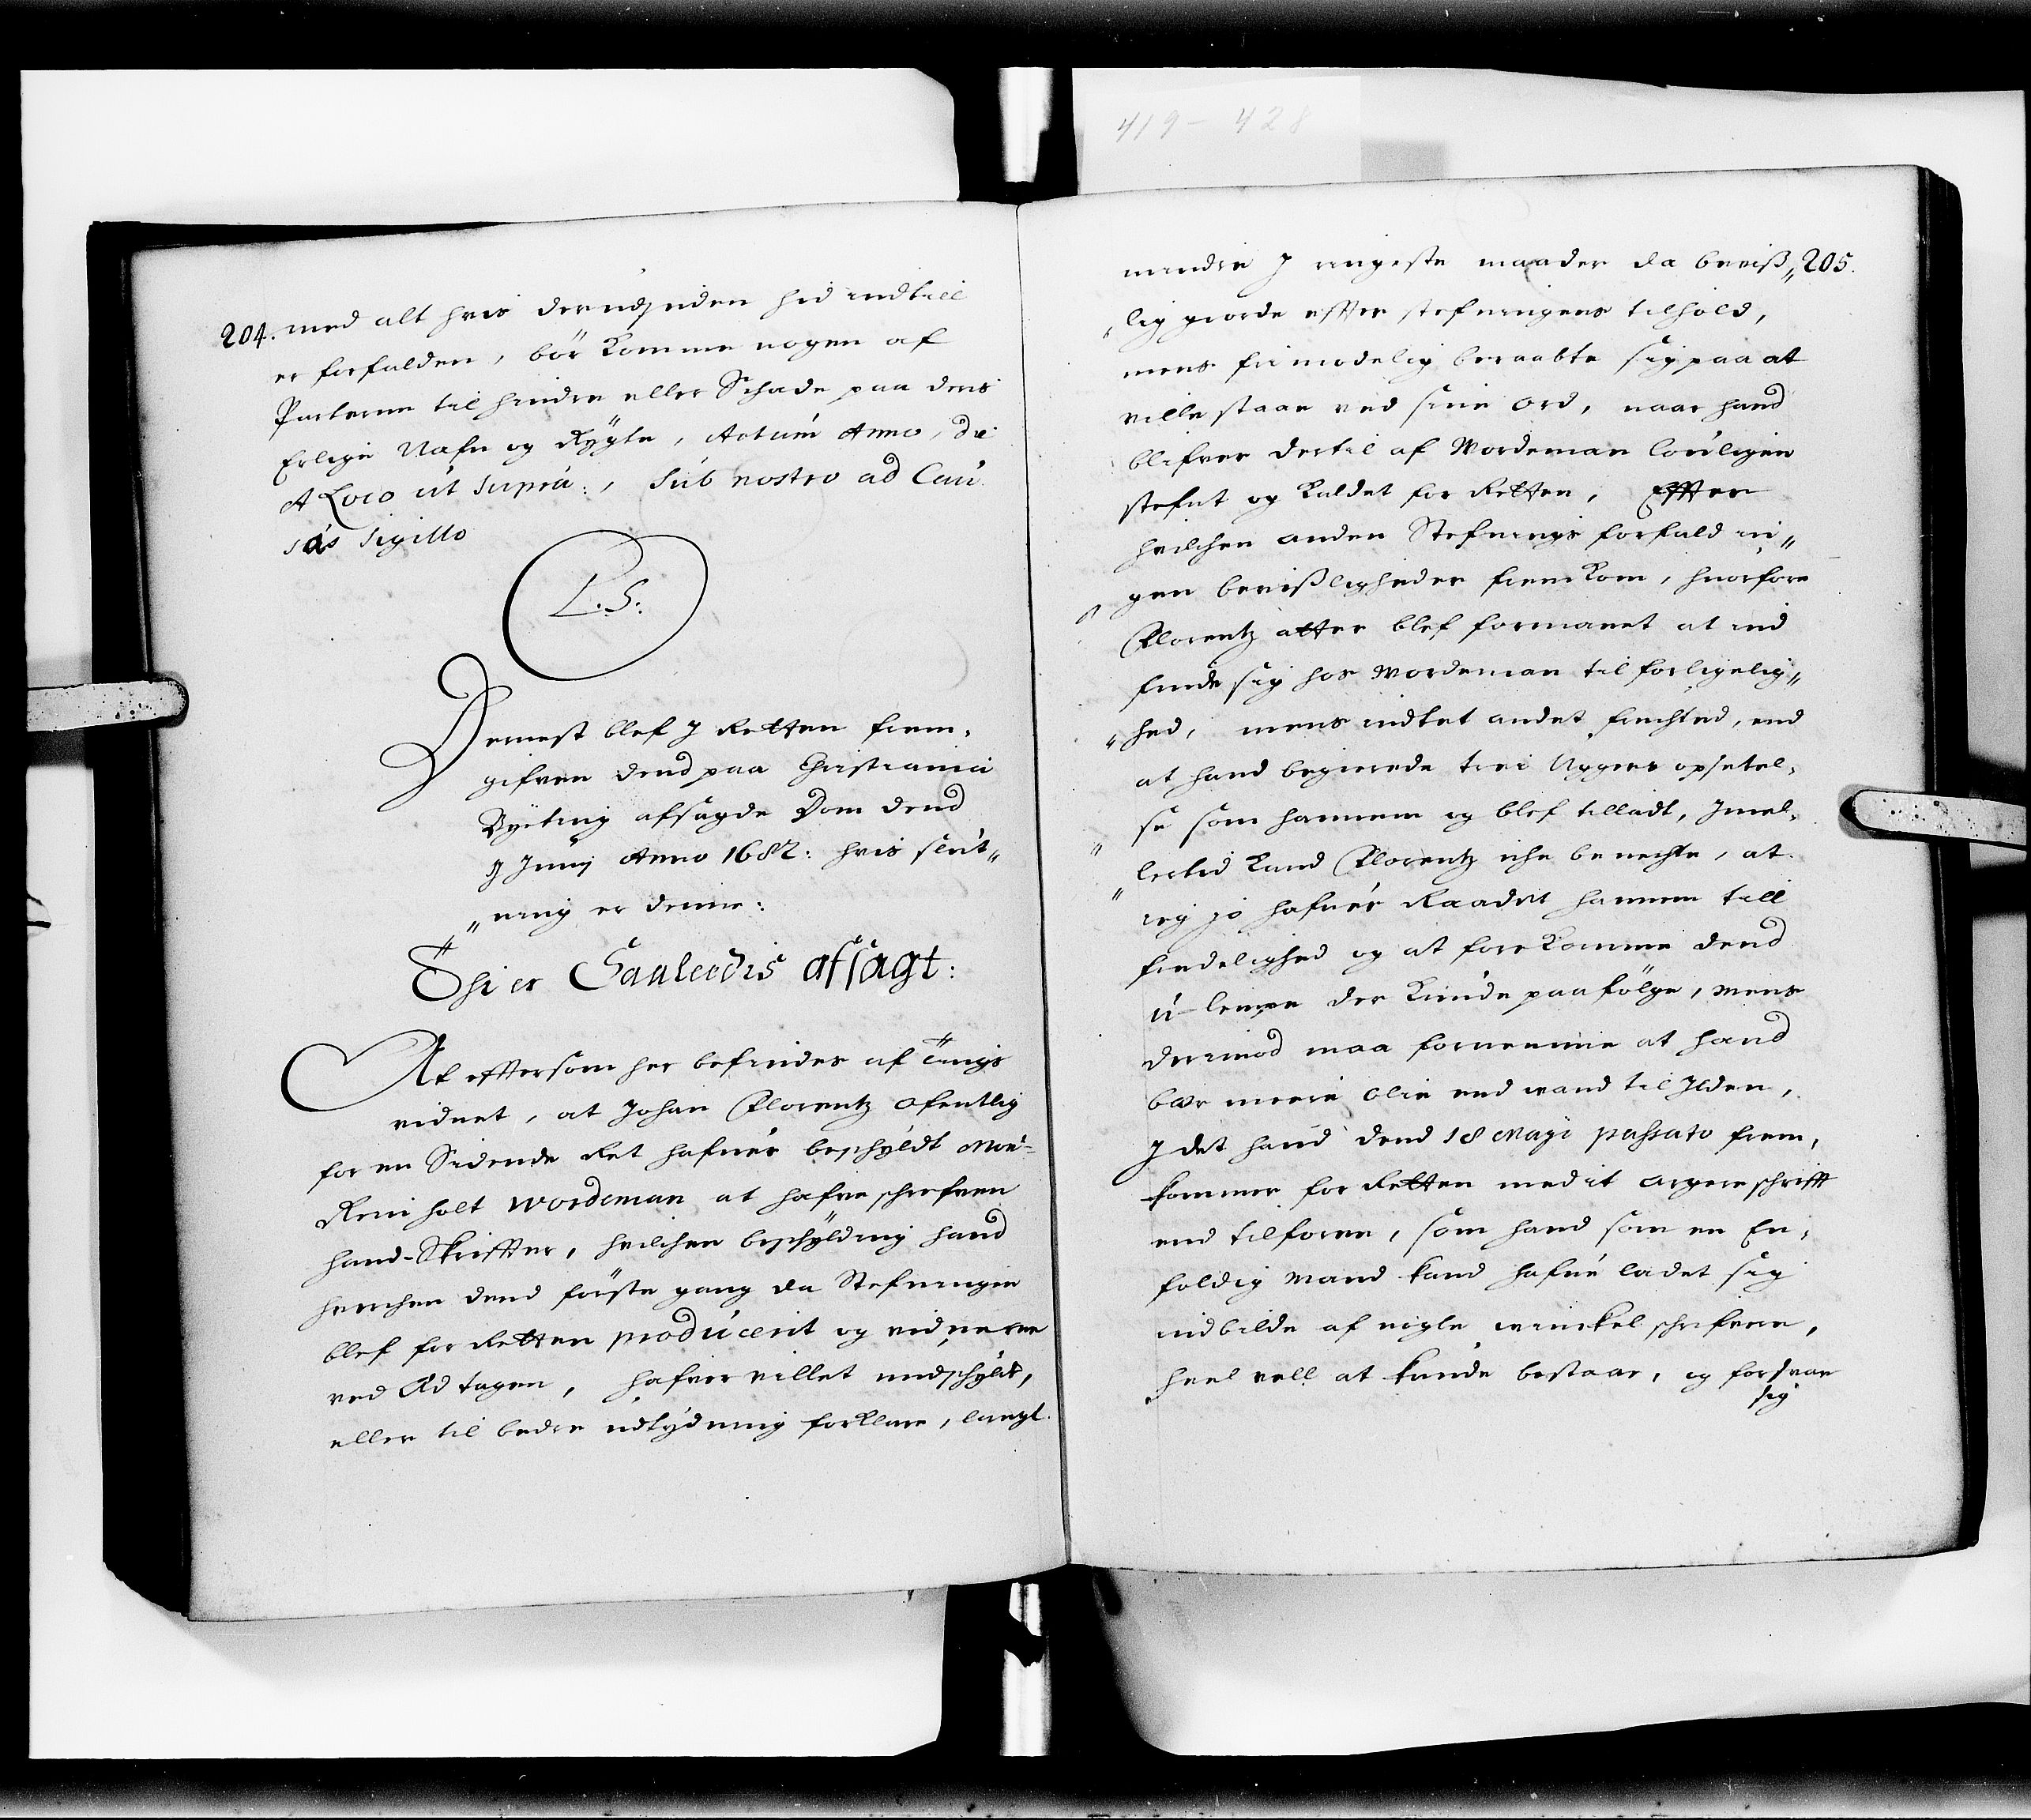 419 - 428
204. med alt hvis derudjnden hid indtill
er forfalden, bör komme nogen af
Parterne til hindre eller Schade paa deris
Erlige Nafn og Rÿgte, Actum Anno, die
& Loco ut supra:, Sub nostro ad Cau
sas Sigillo
L.S:
Dernest blef J Retten frem,
gifven dend paa Christiania
Byeting afsagde Dom dend
J Junij Anno 1682: hvis slut„
„ning er denne:
Thi er Saaledis afsagt:
At effersom her befindes af Tings
vidnet, at Johan Florentz ofentlig
for en Sidende Ret hafuer beschÿldt Mon:
Reinholt Wordeman at hafve schrefven
hand-Skriffter, hvilchen beschÿlding hand
hverchen dend förste gang da Stefningen
blef for Retten producerit og vidnerne
ved Æd tagen, hafver villet undschÿlde,
eller til bedre udtÿdning forklare, langt
mindre J ringeste maader da beviß„ 205.
„lig giorde effter stefningens tilhold,
mens frimodelig beraabte sig paa at
ville staae ved sine ord, naar hand
blifver dertil af Wordeman louligen
stefnt og kaldet for Retten, Effter
hvilchen anden Stefnings forfald in„
gen bevißligheder fremkom, hvorfore
Florentz atter blef formanet at ind
finde sig hos Wordeman til forligelig„
„hed, mens indtet andet fruchted, end
at hand begierede trei Ugers opsetel,
se som hannem og blef tilladt, Jmel,
lertid kand Florentz iche benechte, at
ieg jo hafuer Raadet hannem till
fredelighed og at forekomme dend
u-lempe der kunde paafölge, mens
derimod maa fornemme at hand
bær meere olie end vand til Jlden,
J det hand dend 18 Maji passato frem,
kommer for Retten med it argere schrifft
end tilforen, som hand som en En,
foldig Mand kand hafue ladet sig
indbilde af nigle winckel schrifvere,
heel vell at kunde bestaae, og forsvare
sig